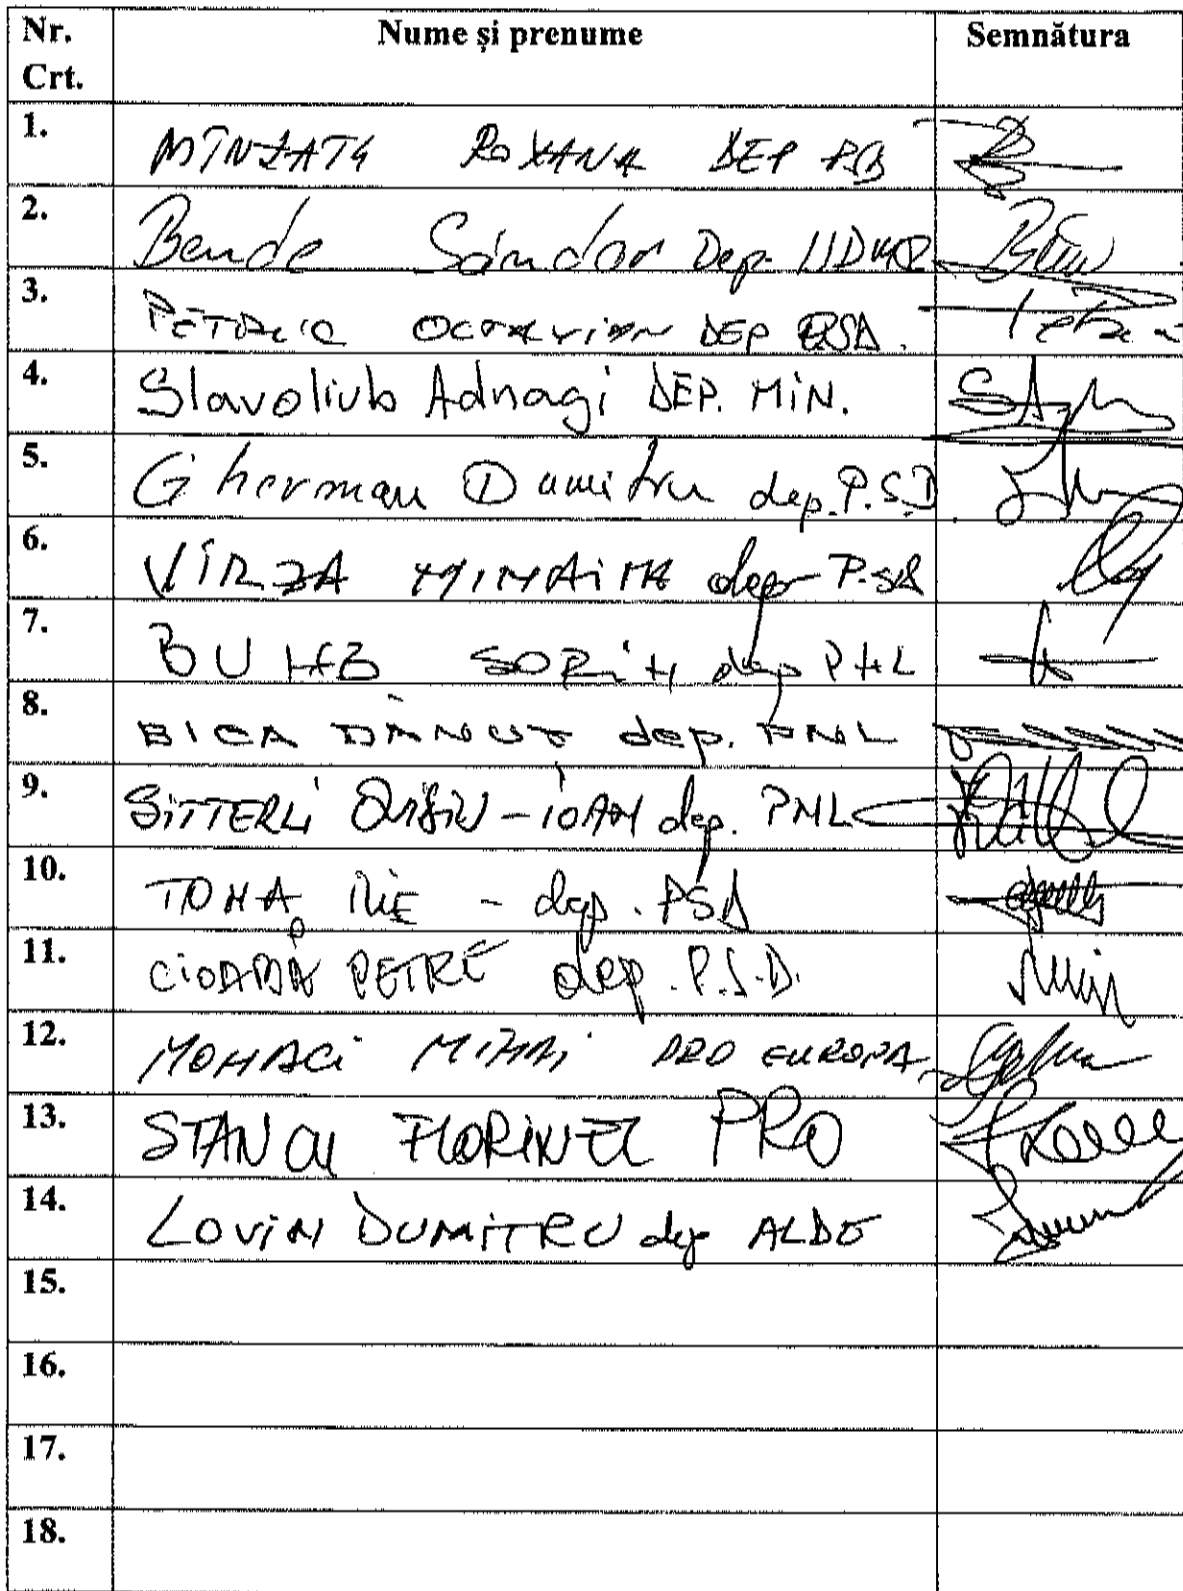 Nr. Crt. Nume și prenume Semnătura
1. MÎNZATU ROXANA DEP
2. Bende Sándor Dep. UDMR
3. PETRIC OCTAVIAN DEP PSD.
4. Slavoliub Adnagi DEP. MIN.
5. Gherman Dumitru dep. P.S.D.
6. VÎRZA MIHAIȚĂ dep PSD
7. BUMB SORIN dep PNL
8. BICA DĂNUȚ dep. PNL
9. SITTERLI OVIDIU-IOAN dep. PNL
10. TOMA ILIE - dep. PSD
11. CIOABĂ PETRE dep. P.S.D.
12. MOHACI MIHAI PRO EUROPA
13. STANCU FLORINEL PRO
14. LOVIN DUMITRU dep ALDE
15.
16.
17.
18.